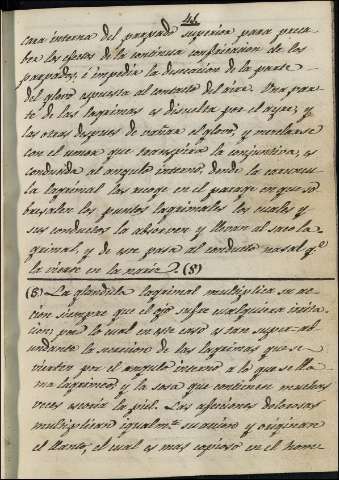 41.
cara interna del parpado superior para preca-
ber los efectos de la continua confricacion de los
parpados, é impedir la desecacion de la parte
del glovo expuesta al contacto del aire. Una par-
te de las lagrimas es disuelta por el ayre; y
las otras despues de vañar el glovo, y mezclarse
con el umor que transpira la conjuntiva, es
conducida al angulo interno, donde la caruncu-
la lagrimal las recoge en el parage en que so-
bresalen los puntos lagrimales los cuales y
sus conductos la absorven y llevan al saco la-
grimal, y de este pasa al conducto nasal q.e
la vierte en la nariz. (8)
(8) La glandula lagrimal multiplica su ac-
cion siempre que el ojo sufre cualquiera irrita-
cion; por lo cual en este caso es tan super-ab-
undante la secrecion de las lagrimas que se
vierten por el angulo interno á lo que se lla-
ma lagrimeo; y la sosa que contienen muchas
veces escoria la piel. Las afecciones dolorosas
multiplican igualm.te su accion y originan
el llanto, el cual es mas copioso en el hom-